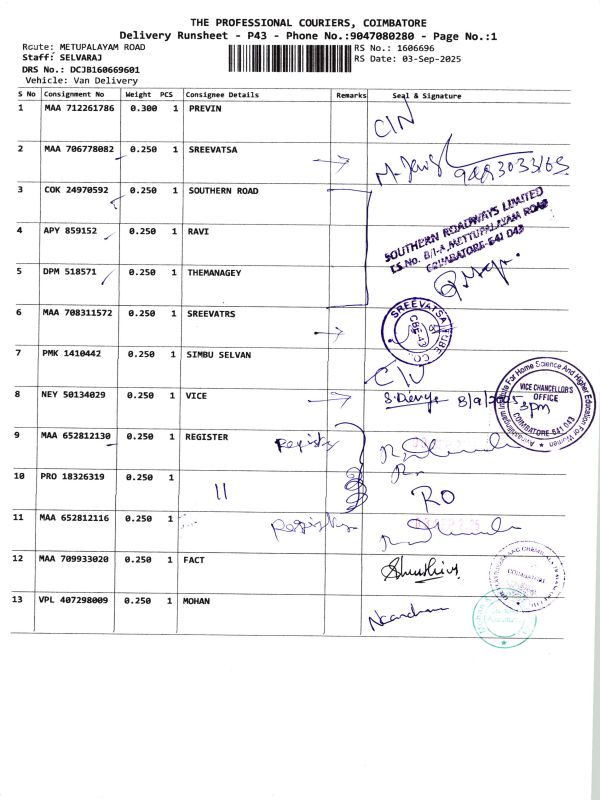 THE PROFESSIONAL COURIERS, COIMBATORE
Delivery Runsheet - P43 - Phone No.:9047080280 - Page No.:1
Route: METUPALAYAM ROAD
RS No.: 1606696
Staff: SELVARAJ
RS Date: 03-Sep-2025
DRS No.: DCJB160669601
Vehicle: Van Delivery
S No Consignment No Weight PCS Consignee Details Remarks Seal & Signature
1 MAA 712261786 0.300 1 PREVIN C/N
2 MAA 706778082 0.250 1 SREEVATSA
3 COK 24970592 0.250 1 SOUTHERN ROAD
SOUTHERN ROADWAYS LIMITED
I.S.No. 8/1-A, METTUPALAYAM ROAD
COIMBATORE-641 043
4 APY 859152 0.250 1 RAVI
5 DPM 518571 0.250 1 THEMANAGEY
6 MAA 708311572 0.250 1 SREEVATRS
SREEVATSA TUBE CO.
CBE-43
7 PMK 1410442 0.250 1 SIMBU SELVAN C/N
8 NEY 50134029 0.250 1 VICE S.Devya 3/9/2025 3pm
Avinashilingam Institute For Home Science And Higher Education For Women
VICE CHANCELLOR'S
OFFICE
COIMBATORE-641 043
9 MAA 652812130 0.250 1 REGISTER Register
10 PRO 18326319 0.250 1 11 RO
11 MAA 652812116 0.250 1 Register
12 MAA 709933020 0.250 1 FACT
COIMBATORE
13 VPL 407298009 0.250 1 MOHAN